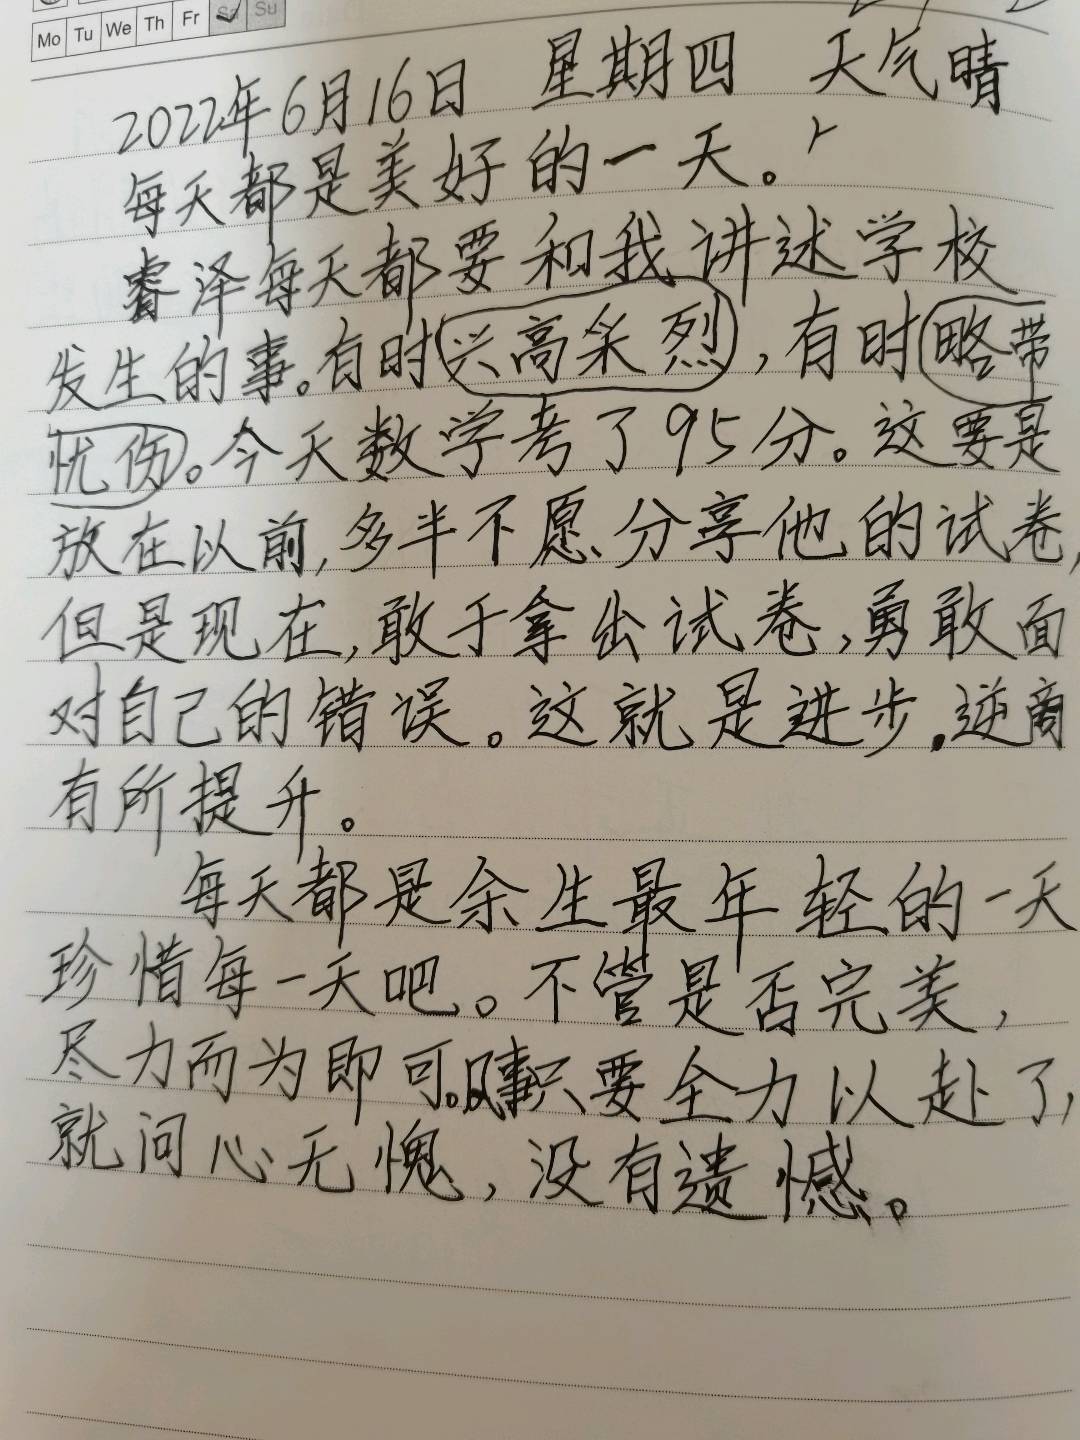 Mo Tu We Th Fr Sa Su
2022年6月16日 星期四 天气晴
每天都是美好的一天。
睿泽每天都要和我讲述学校
发生的事。有时兴高采烈，有时略带
忧伤。今天数学考了95分。这要是
放在以前，多半不愿分享他的试卷，
但是现在，敢于拿出试卷，勇敢面
对自己的错误。这就是进步。逆商
有所提升。
每天都是余生最年轻的一天
珍惜每一天吧。不管是否完美，
尽力而为即可。只要全力以赴了，
就问心无愧，没有遗憾。